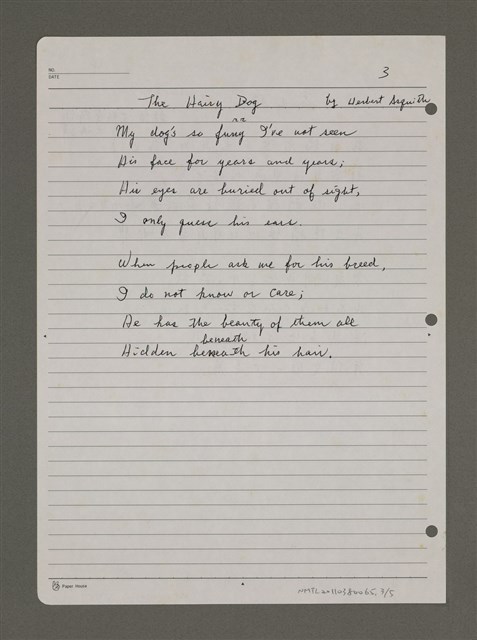 NO.
DATE
3
The Hairy Dog by Herbert Asquith
rr
My dog's so fury I've not seen
His face for years and years;
His eyes are buried out of sight,
I only guess his ears.
When people ask me for his breed,
I do not know or care;
He has the beauty of them all
beneath
Hidden beneath his hair.
Paper House
NMTL20110380065, 3/5